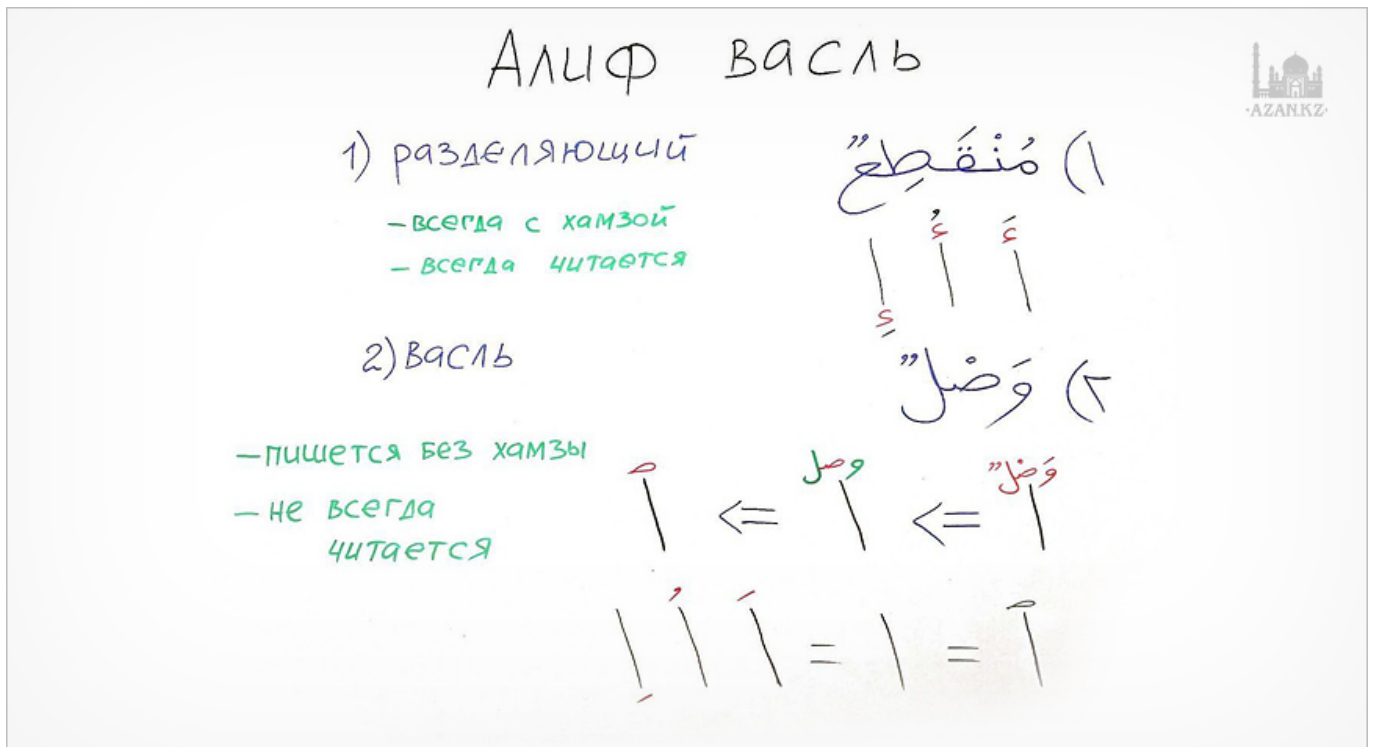 Алиф васль
·AZAN.KZ·
1) разделяющий
١) مُنْقَطِعٌ
- всегда с хамзой
- всегда читается
أَ أُ إِ
2) васль
٢) وَصْلٌ
- пишется без хамзы
- не всегда
читается
وَصْلٌ ا <= وصل ا <= ٱ
ٱ = ا = اَ اُ اِ